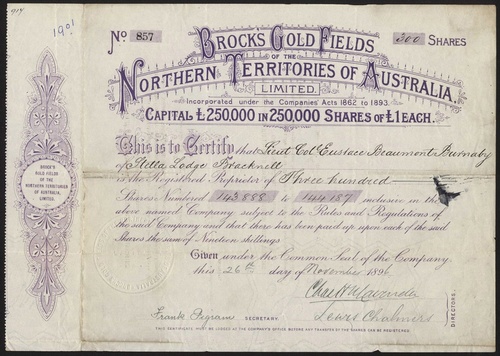 1901
No 857
BROCKS GOLD FIELDS
OF THE
NORTHERN TERRITORIES OF AUSTRALIA.
LIMITED.
300 SHARES
Incorporated under the Companies' Acts 1862 to 1893.
CAPITAL £250,000 IN 250,000 SHARES OF £1 EACH.
This is to Certify that Lieut Col Eustace Beaumont Burnaby
of Stella Lodge Bracknell
is the Registered Proprietor of Three hundred
Shares Numbered 143888 to 144187 inclusive in the
above named Company subject to the Rules and Regulations of
the said Company and that there has been paid up upon each of the said
Shares the sum of Nineteen shillings
Given under the Common Seal of the Company
this 26th day of November 1896
Lewis Chalmers
DIRECTORS.
Frank Pegram SECRETARY.
THIS CERTIFICATE MUST BE LODGED AT THE COMPANY'S OFFICE BEFORE ANY TRANSFER OF THE SHARES CAN BE REGISTERED.
BROCK'S
GOLD FIELDS
OF THE
NORTHERN TERRITORIES
OF AUSTRALIA,
LIMITED.